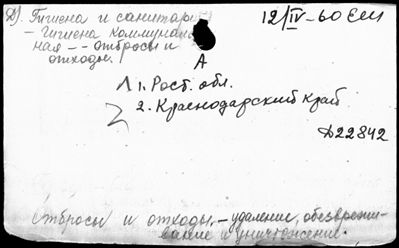 Д). Гигиена и санитария
– Гигиена коммуналь-
ная -- отбросы и
отходы.
12/IV-60
А
1. Рост. обл.
2. Краснодарский край
Д22842
Отбросы и отходы, – удаление, обезврежи-
вание и уничтожение.